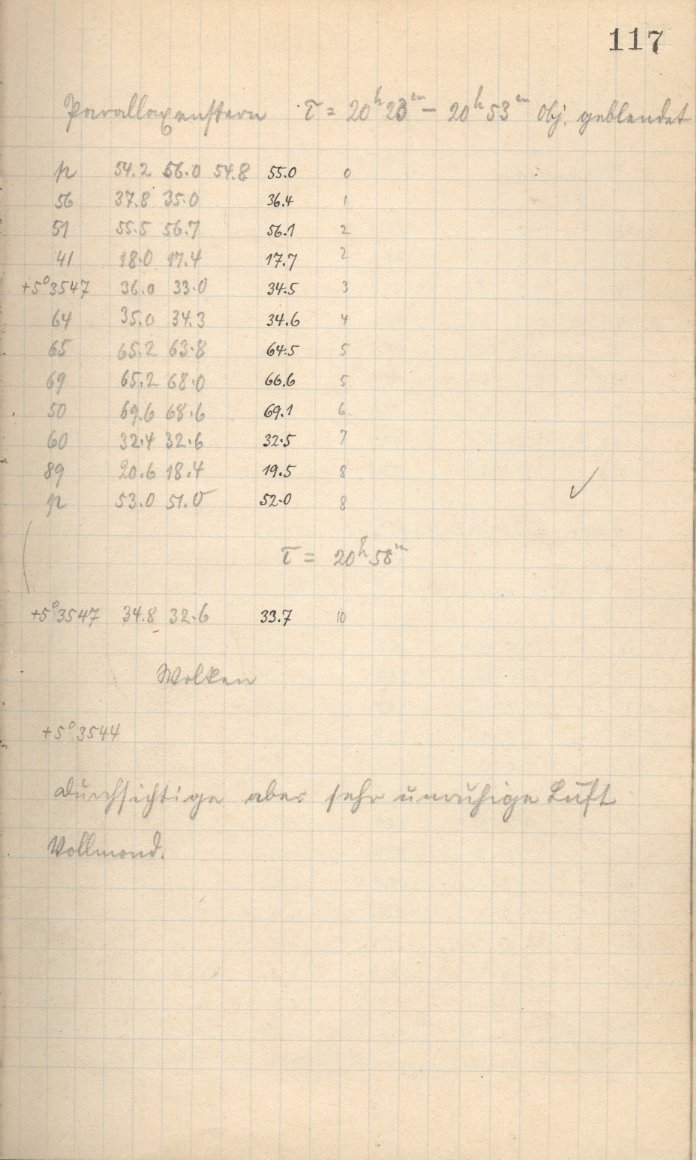 117
Parallaxenstern τ = 20ʰ23ᵐ – 20ʰ53ᵐ Obj. geblendet
p 54.2 56.0 54.8 55.0 0
56 37.8 35.0 36.4 1
51 55.5 56.7 56.1 2
41 18.0 17.4 17.7 2
+5°3547 36.0 33.0 34.5 3
64 35.0 34.3 34.6 4
65 65.2 63.8 64.5 5
69 65.2 68.0 66.6 5
50 69.6 68.6 69.1 6
60 32.4 32.6 32.5 7
89 20.6 18.4 19.5 8
p 53.0 51.0 52.0 8
✓
τ = 20ʰ58ᵐ
+5°3547 34.8 32.6 33.7 10
Wolken
+5°3544
Durchsichtige aber sehr unruhige Luft
Vollmond.